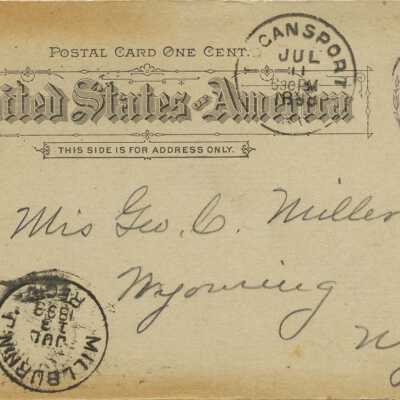 POSTAL CARD ONE CENT.
United States of America
THIS SIDE IS FOR ADDRESS ONLY.
CANSPORT
JUL
11
530 PM
Mrs Geo. C. Miller
Wyoming
N
MILLBURN
JUL
13
REC'D